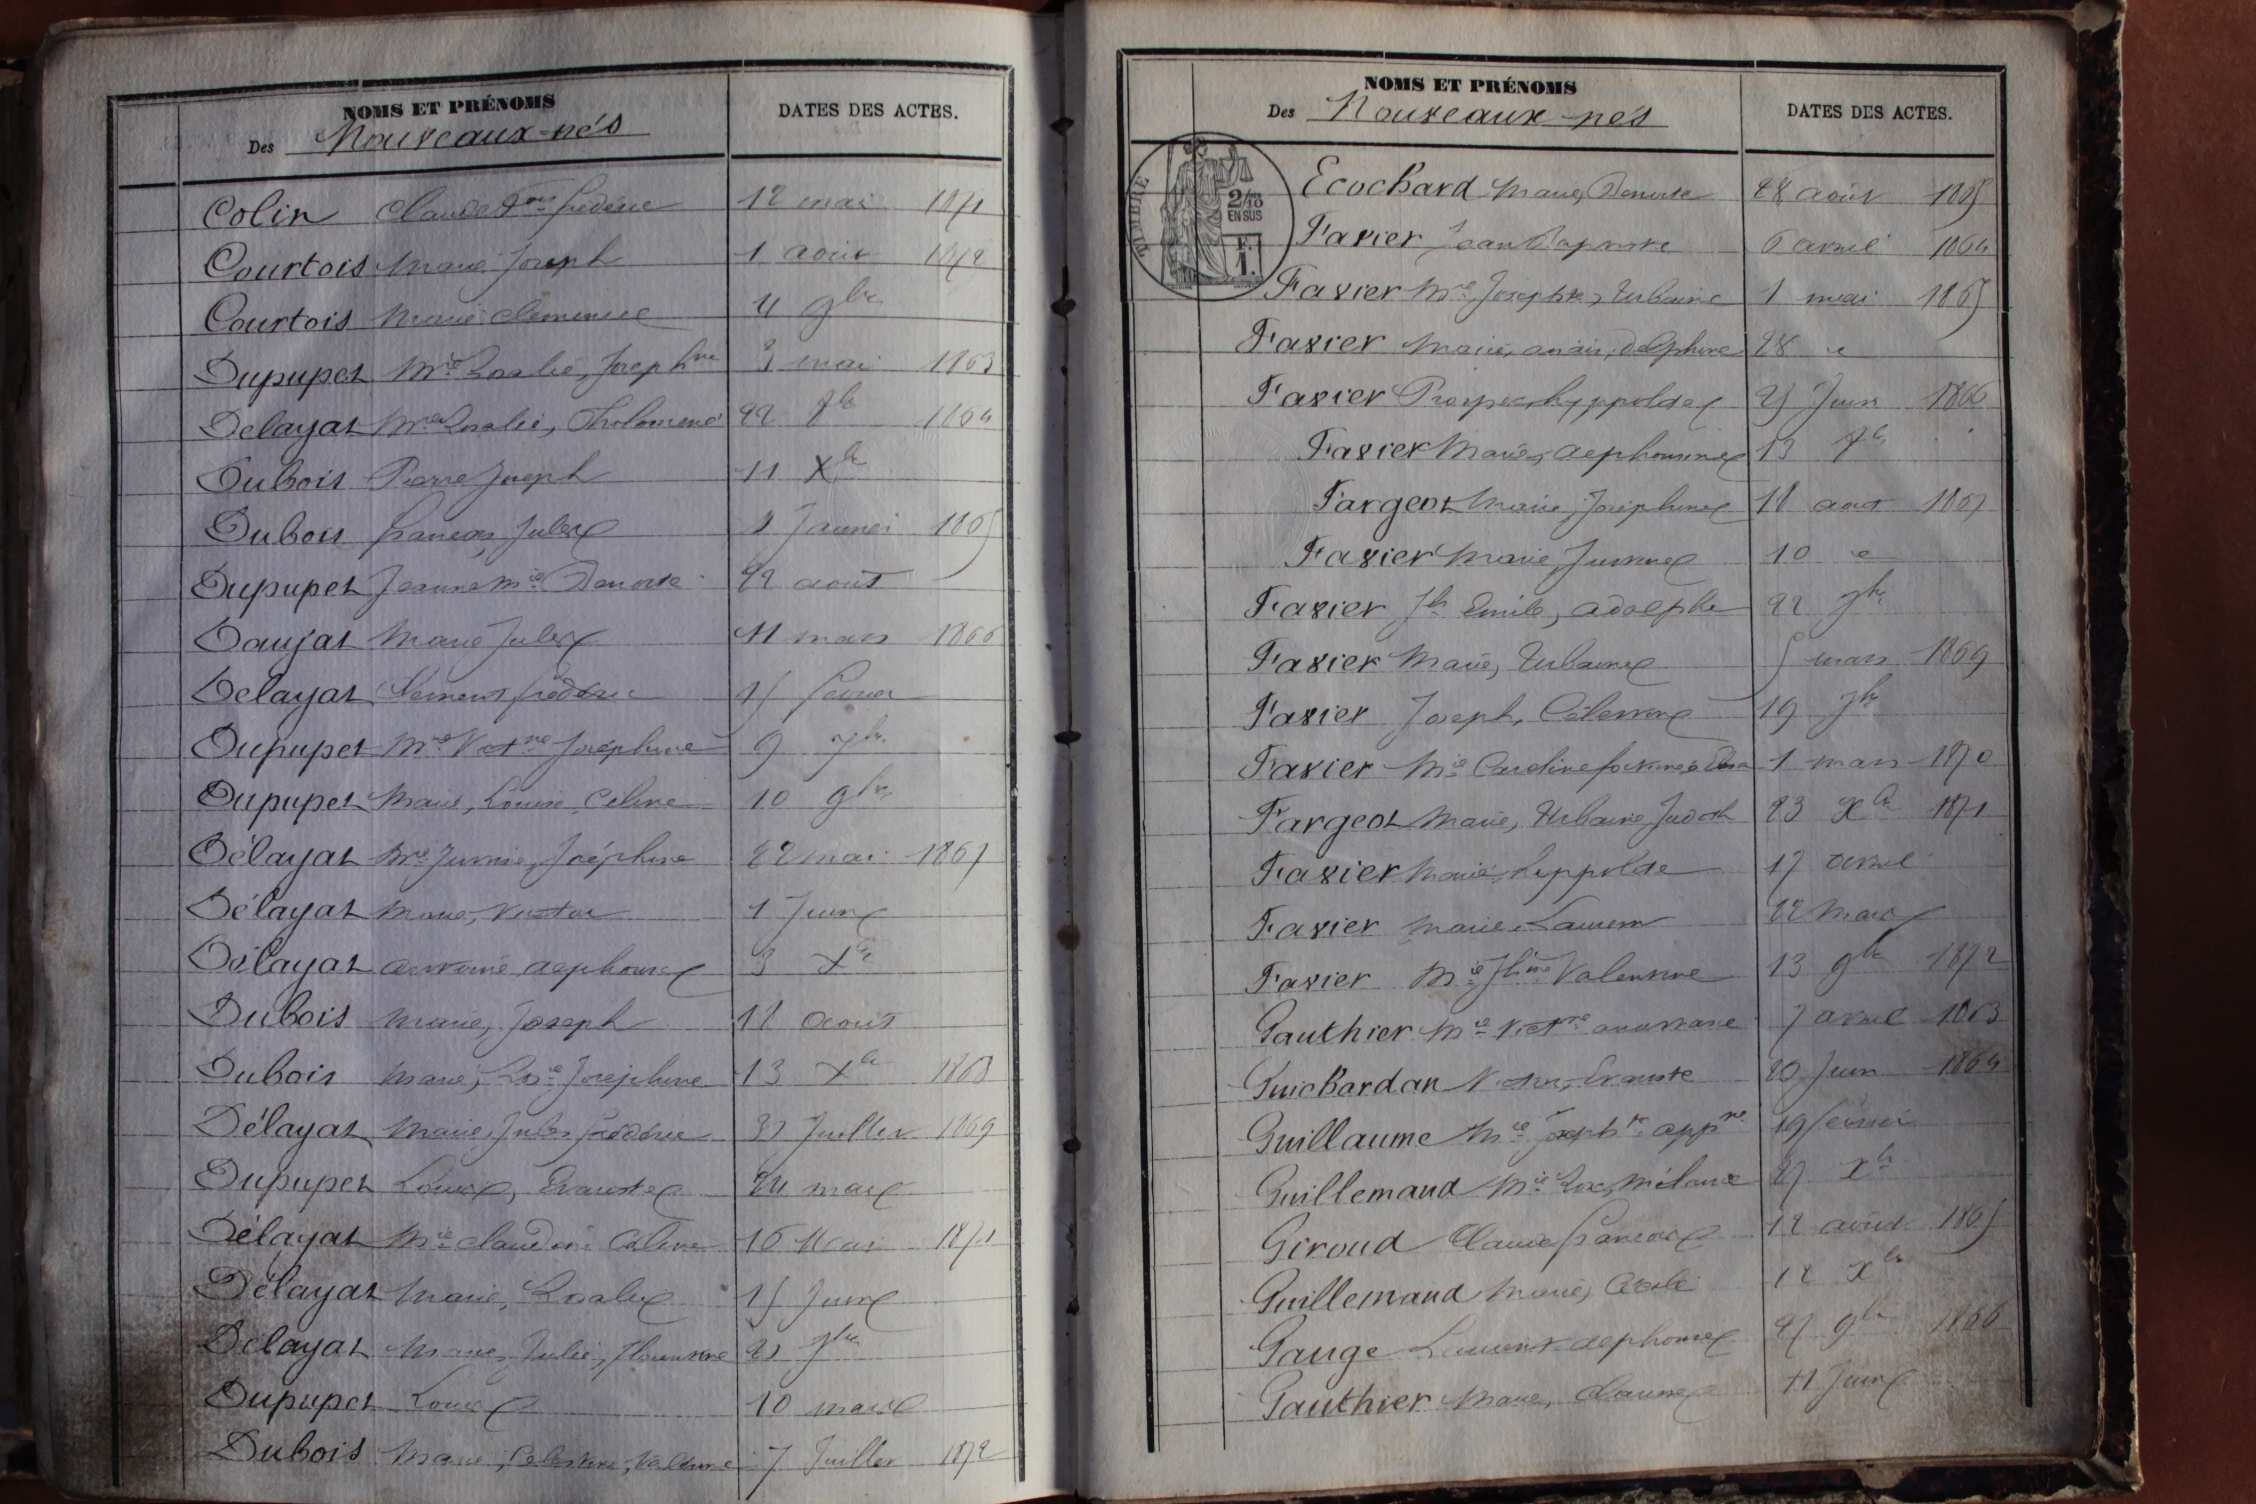 NOMS ET PRÉNOMS
Des Nouveaux-nés
DATES DES ACTES.
Colin Claude frédéric 12 mai 1871
Courtois Marie Joseph 1 août 1872
Courtois Marie Clémence 4 9bre
Dupupet Mie Rosalie, Josephne 3 mai 1863
Delayat Mie Rosalie, Philomène 22 1864
Dubois Pierre Joseph 11 Xbre
Dubois françois, Jules Janvier 1865
Dupupet Jeanne Mie Benoite 22 août
Daujat Marie Jules 11 mars 1866
Delayat Clément frédéric 15 février
Dupupet Mie Victne Joséphine 9
Dupupet Marie, Louise, Céline 10 9bre
Délayat Mie Joséphine 22 mai 1867
Délayat Marie, Victor 1 Juin
Délayat Antoine Alphonse 3 Xbre
Dubois Marie, Joseph 11 août
Dubois Marie, Rose Joséphine 13 Xbre 1868
Délayat Marie, Jules frédéric Juillet 1869
Dupupet Louis, Evariste 24 mars
Délayat Mie Claudine Céline 16 Mai 1871
Délayat Marie, Rosalie 15 Juin
Délayat Marie, Julie, Florentine
Dupupet Louis 10 mars
Dubois Marie, Célestine, Valérine 7 Juillet 1872
NOMS ET PRÉNOMS
Des Nouveaux-nés
DATES DES ACTES.
TIMBRE
2/10
EN SUS
F.
1.
Ecochard Marie, Benoite 28 août 1865
Favier Jean Baptiste 6 avril 1864
Favier Mie Josephte, Urbaine 1 mai 1865
Favier Marie, anaïs, delphine 28
Favier Prosper, hyppolite 25 Juin 1866
Favier Marie, alphonsine 13
Fargeot Marie, Joséphine 18 août 1867
Favier Marie, 10
Favier Jh Emile, adolphe 22
Favier Marie, Urbaine 5 mars 1869
Favier Joseph, Célestin 19
Favier Mie Caroline 1 mars 1870
Fargeot Marie, Urbaine, Judith 23 Xbre 1871
Favier Marie, hyppolite 17 avril
Favier Marie Laurent 12 Mars
Favier Mie Valentine 13 9bre 1872
Gauthier Mie Victne anastasie 7 avril 1863
Guichardan Victor, Evariste 20 Juin 1864
Guillaume Mie Joseph 19 février
Guillemaud Mie Rose, Mélanie 27 Xbre
Giroud Claude françois 12 août 1865
Guillemaud Marie, Cécile 12 Xbre
Gauge Laurent alphonse 27 9bre 1866
Gauthier Marie, 11 Juin